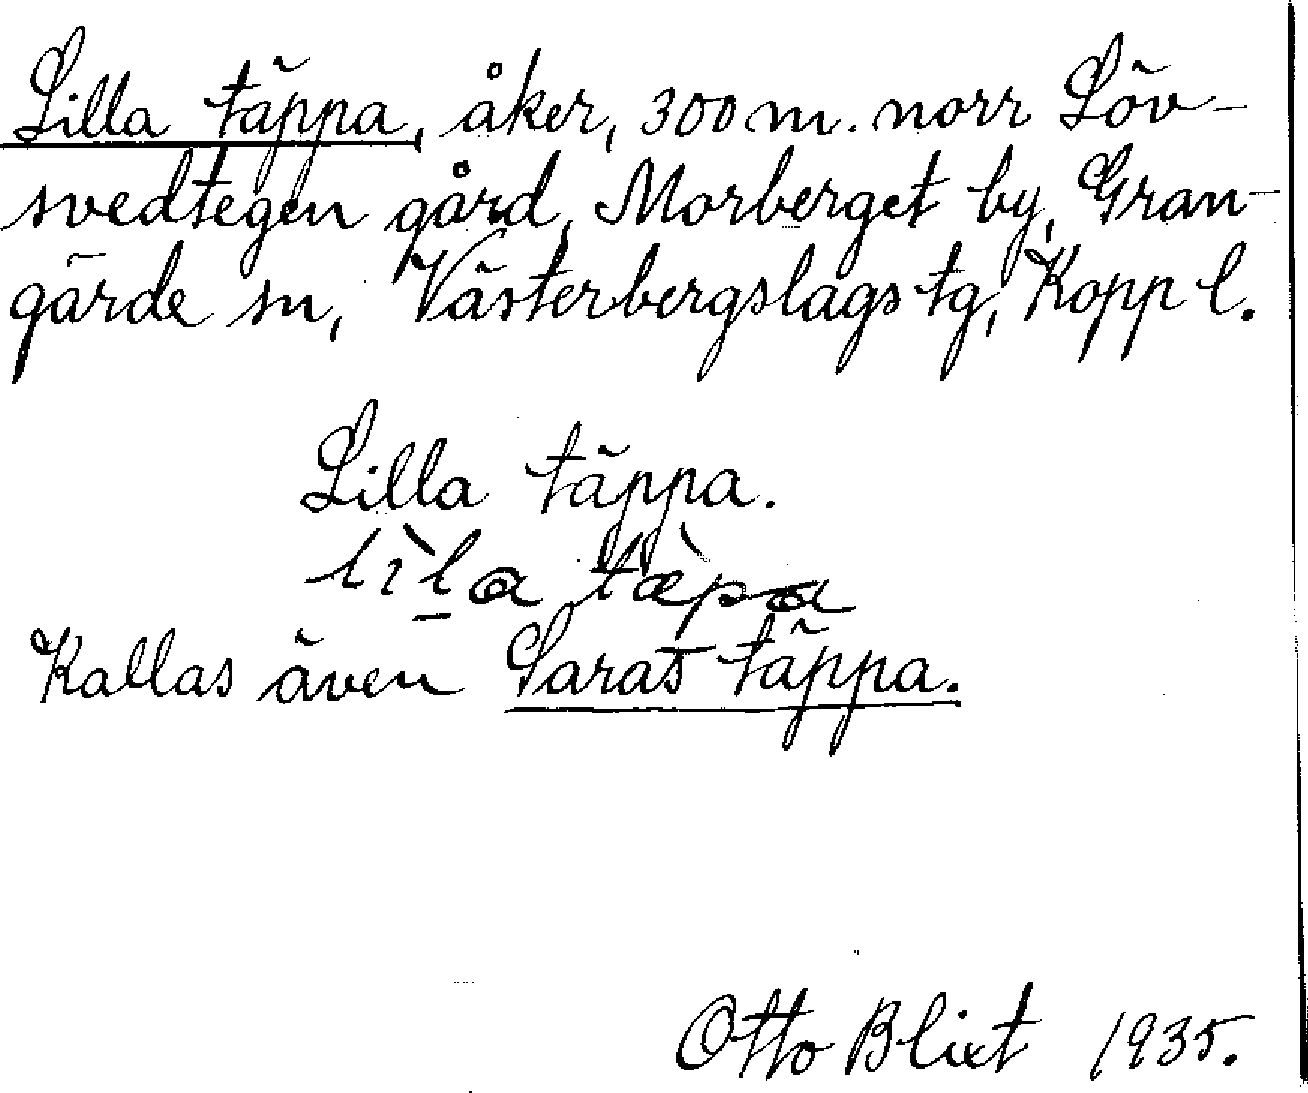 Lilla täppa, åker, 300 m. norr Löv-
svedtegen gård, Morberget by, Gran-
gärde sn, Västerbergslags tg, Kopp l.
Lilla täppa.
lìl̠a tæ̀pa
Kallas även Saras täppa.
Otto Blixt 1935.